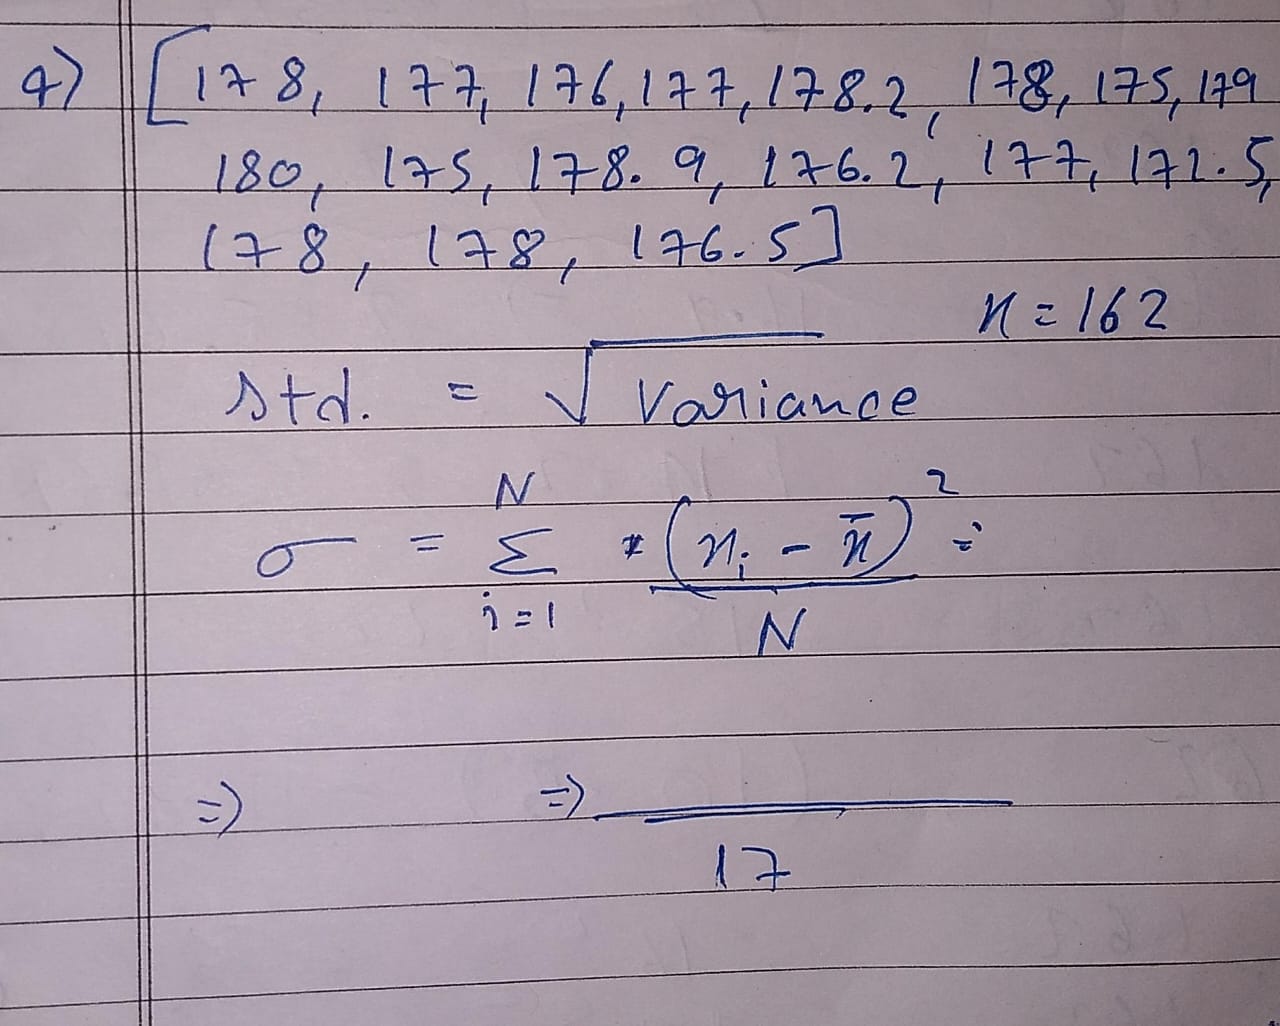 4) [178, 177, 176, 177, 178.2, 178, 175, 179
180, 175, 178.9, 176.2, 177, 172.5,
178, 178, 176.5]
x = 162
std. = √Variance
σ = N Σ i=1 (xi - x̄)² / N =
=> => / 17